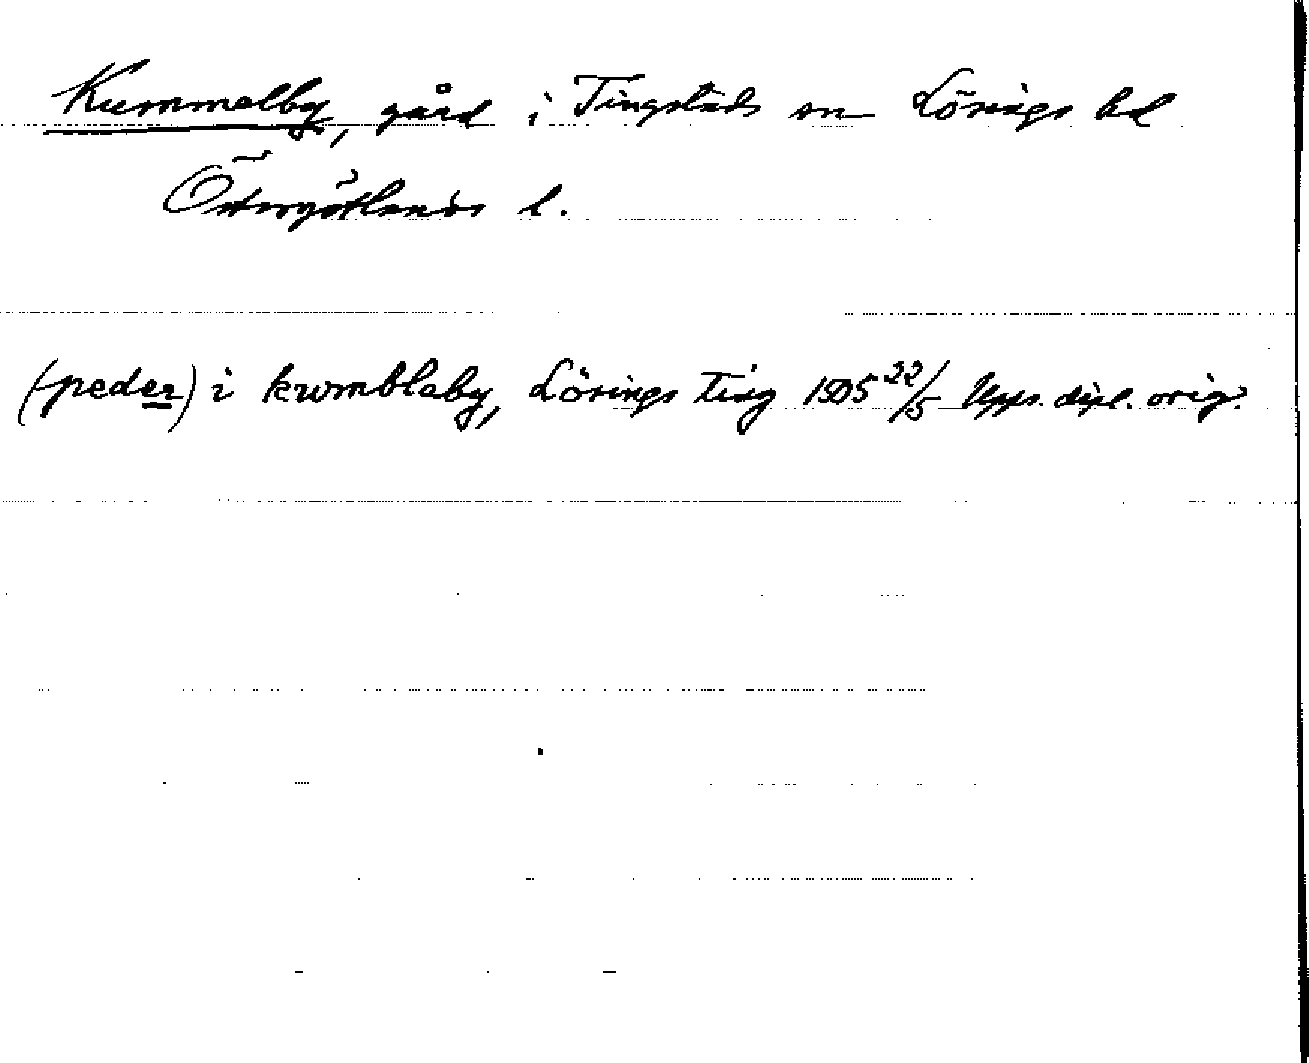 Kummelby, gård i Tingstads sn Lösings hd
Östergötlands l.
(peder) i kwmblaby, Lösings Ting 1505 22/5 Upps. dipl. orig.